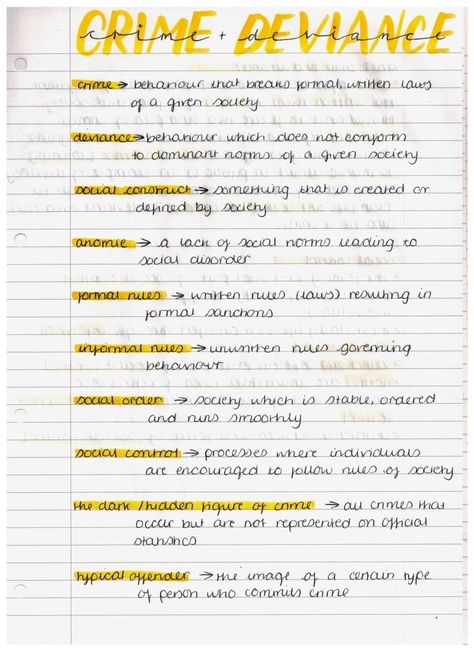 CRIME + DEVIANCE
crime + deviance
crime → behaviour that breaks formal, written laws
of a given society
deviance → behaviour which does not conform
to dominant norms of a given society
social construct → something that is created or
defined by society
anomie → a lack of social norms leading to
social disorder
formal rules → written rules (laws) resulting in
formal sanctions
informal rules → unwritten rules governing
behaviour
social order → society which is stable, ordered
and runs smoothly
social control → processes where individuals
are encouraged to follow rules of society
the dark / hidden figure of crime → all crimes that
occur but are not represented on official
statistics
typical offender → the image of a certain type
of person who commits crime